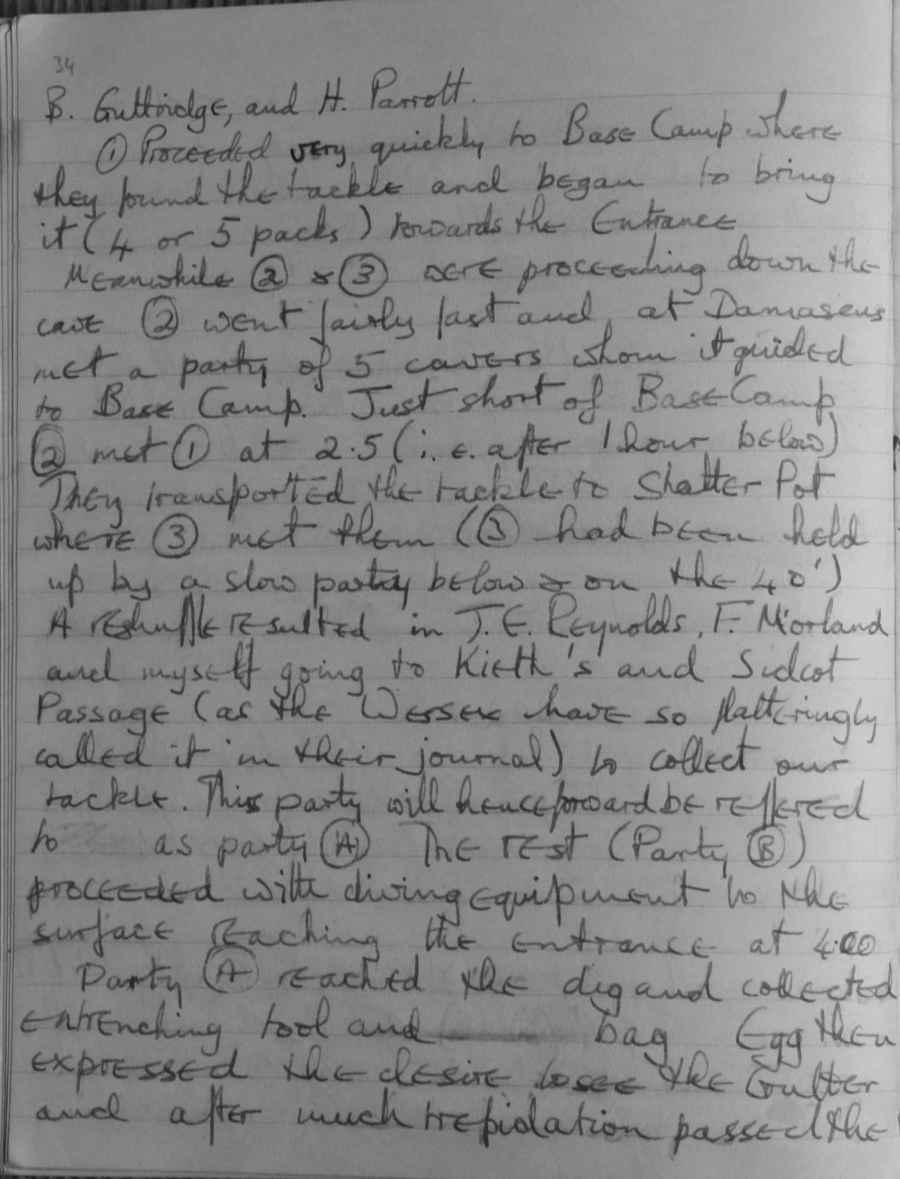 34
B. Guttridge, and H. Parrott.
① Proceeded very quickly to Base Camp where
they found the tackle and began to bring
it (4 or 5 packs) towards the Entrance
Meanwhile ② & ③ were proceeding down the
cave ② went fairly fast and, at Damascus
met a party of 5 cavers whom it guided
to Base Camp. Just short of Base Camp
② met ① at 2.5 (i.e. after 1 hour below)
They transported the tackle to Shatter Pot
where ③ met them (③ had been held
up by a slow party below & on the 40')
A reshuffle resulted in J.E. Reynolds, F. Morland
and myself going to Kieth's and Sidcot
Passage (as the Wessex have so flatteringly
called it in their journal) to collect our
tackle. This party will henceforward be reffered
to as party Ⓐ The rest (Party Ⓑ)
proceeded with diving equipment to the
surface reaching the entrance at 4.00
Party Ⓐ reached the dig and collected
entrenching tool and bag Egg then
expressed the desire to see the Gutter
and after much trepidation passed the